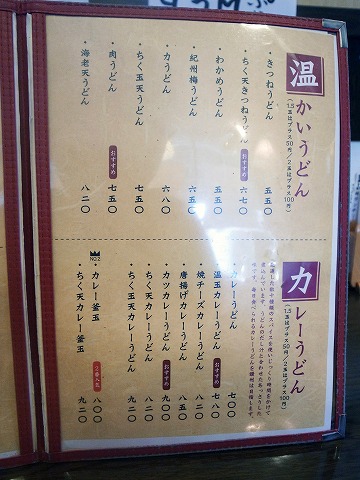 温かいうどん
(1.5玉はプラス50円/2玉はプラス100円)
・きつねうどん 五五〇
・ちく天きつねうどん おすすめ 六七〇
・わかめうどん 五五〇
・紀州梅うどん 六五〇
・力うどん 六八〇
・ちく玉天うどん 七五〇
・肉うどん おすすめ 七五〇
・海老天うどん 八二〇
カレーうどん
(1.5玉はプラス50円/2玉はプラス100円)
・カレーうどん 七〇〇
・温玉カレーうどん おすすめ 七八〇
・焼チーズカレーうどん 八二〇
・唐揚げカレーうどん 八五〇
・カツカレーうどん おすすめ 九〇〇
・ちく天カレーうどん 八二〇
・ちく玉天カレーうどん 九二〇
NO.2
・カレー釜玉 2番人気 八〇〇
・ちく天カレー釜玉 九二〇